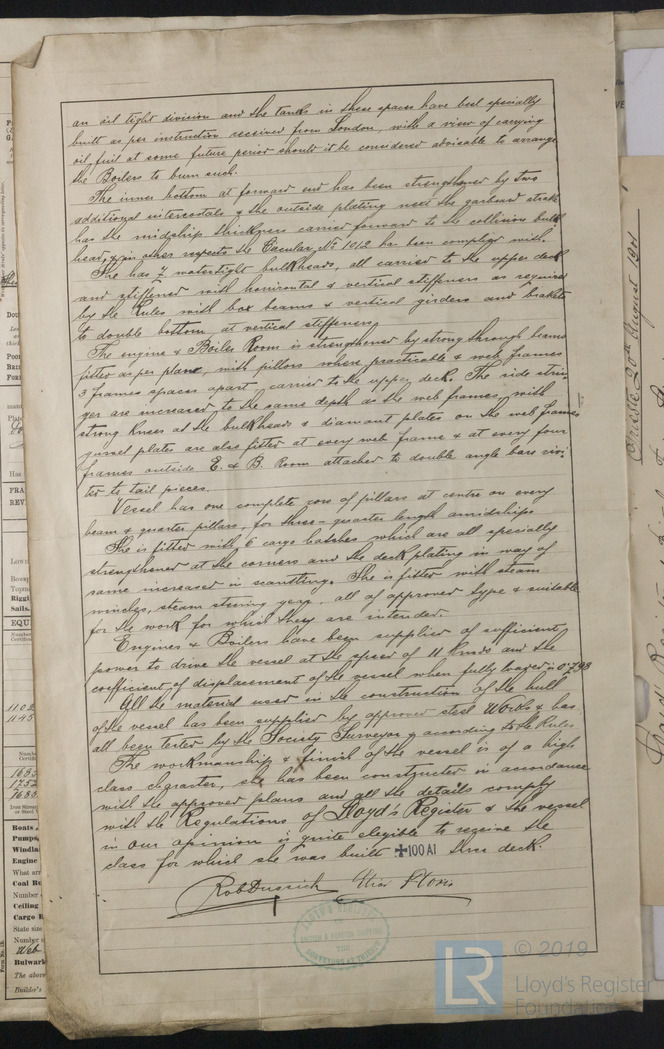 an oil tight division and the tanks in these spaces have been specially
built as per instruction received from London, with a view of carrying
oil fuel at some future period should it be considered advisable to arrange
the Boilers to burn such.
The inner bottom at forward end has been strengthened by two
additional intercostals & the outside plating next the garboard strake
has the midship thickness carried forward to the collision bulk
head, & in other respects the Circular No 1012 has been complied with.
She has 7 watertight bulkheads, all carried to the upper deck
and stiffened with horizontal & vertical stiffeners as required
by the Rules with box beams & vertical girders and brakets
to double bottom at vertical stiffeners.
The engine & Boiler Room is strengthened by strong through beams
fitted as per plane, with pillars where practicable & web frames
3 frames spaces apart, carried to the upper deck. The side strin-
ger are increased to the same depth as the web frames, with
strong knees at the bulkheads & diamant plates on the web frames
gusset plates are also fitted at every web frame & at every four
frames outside E. & B. Room attached to double angle bars riv-
ted to tail pieces.
Vessel has one complete row of pillars at centre on every
beam & quarter pillars, for three-quarter length amidships
She is fitted with 6 cargo hatches which are all specially
strengthened at the corners and the deck plating in way of
same increased in scantling. She is fitted with steam
winches, steam stiring gere, all of approved type & suitable
for the work for which they are intended.
Engines & Boilers have been supplied of sufficient
power to drive the vessel at the speed of 11 knots and the
coefficient of displacement of the vessel when fully loaded is 0,793
All the material used in the construction of the hull
of the vessel has been supplied by approved steel Works & has
all been tested by the Society Surveyors according to the Rules
The workmanship & finish of the vessel is of a high
class character, she has been constructed in accordance
with the approved plans and all the details comply
with the Regulations of Lloyd's Register & the vessel
in our opinion is quite elegible to receive the
class for which she was built ✠100 A1 three deck.
LLOYD'S REGISTER
BRITISH & FOREIGN SHIPPING
THE
SURVEYORS AT TRIESTE
© 2019
LR
Lloyd's Register
Foundation
Trieste 20th August 1901
1102
1145
Boats
Pumps,
Windla
Engine
What arr
Coal Bu
Number
Ceiling
Cargo
State size
Number
Web
Bulwark
The above
Builder's